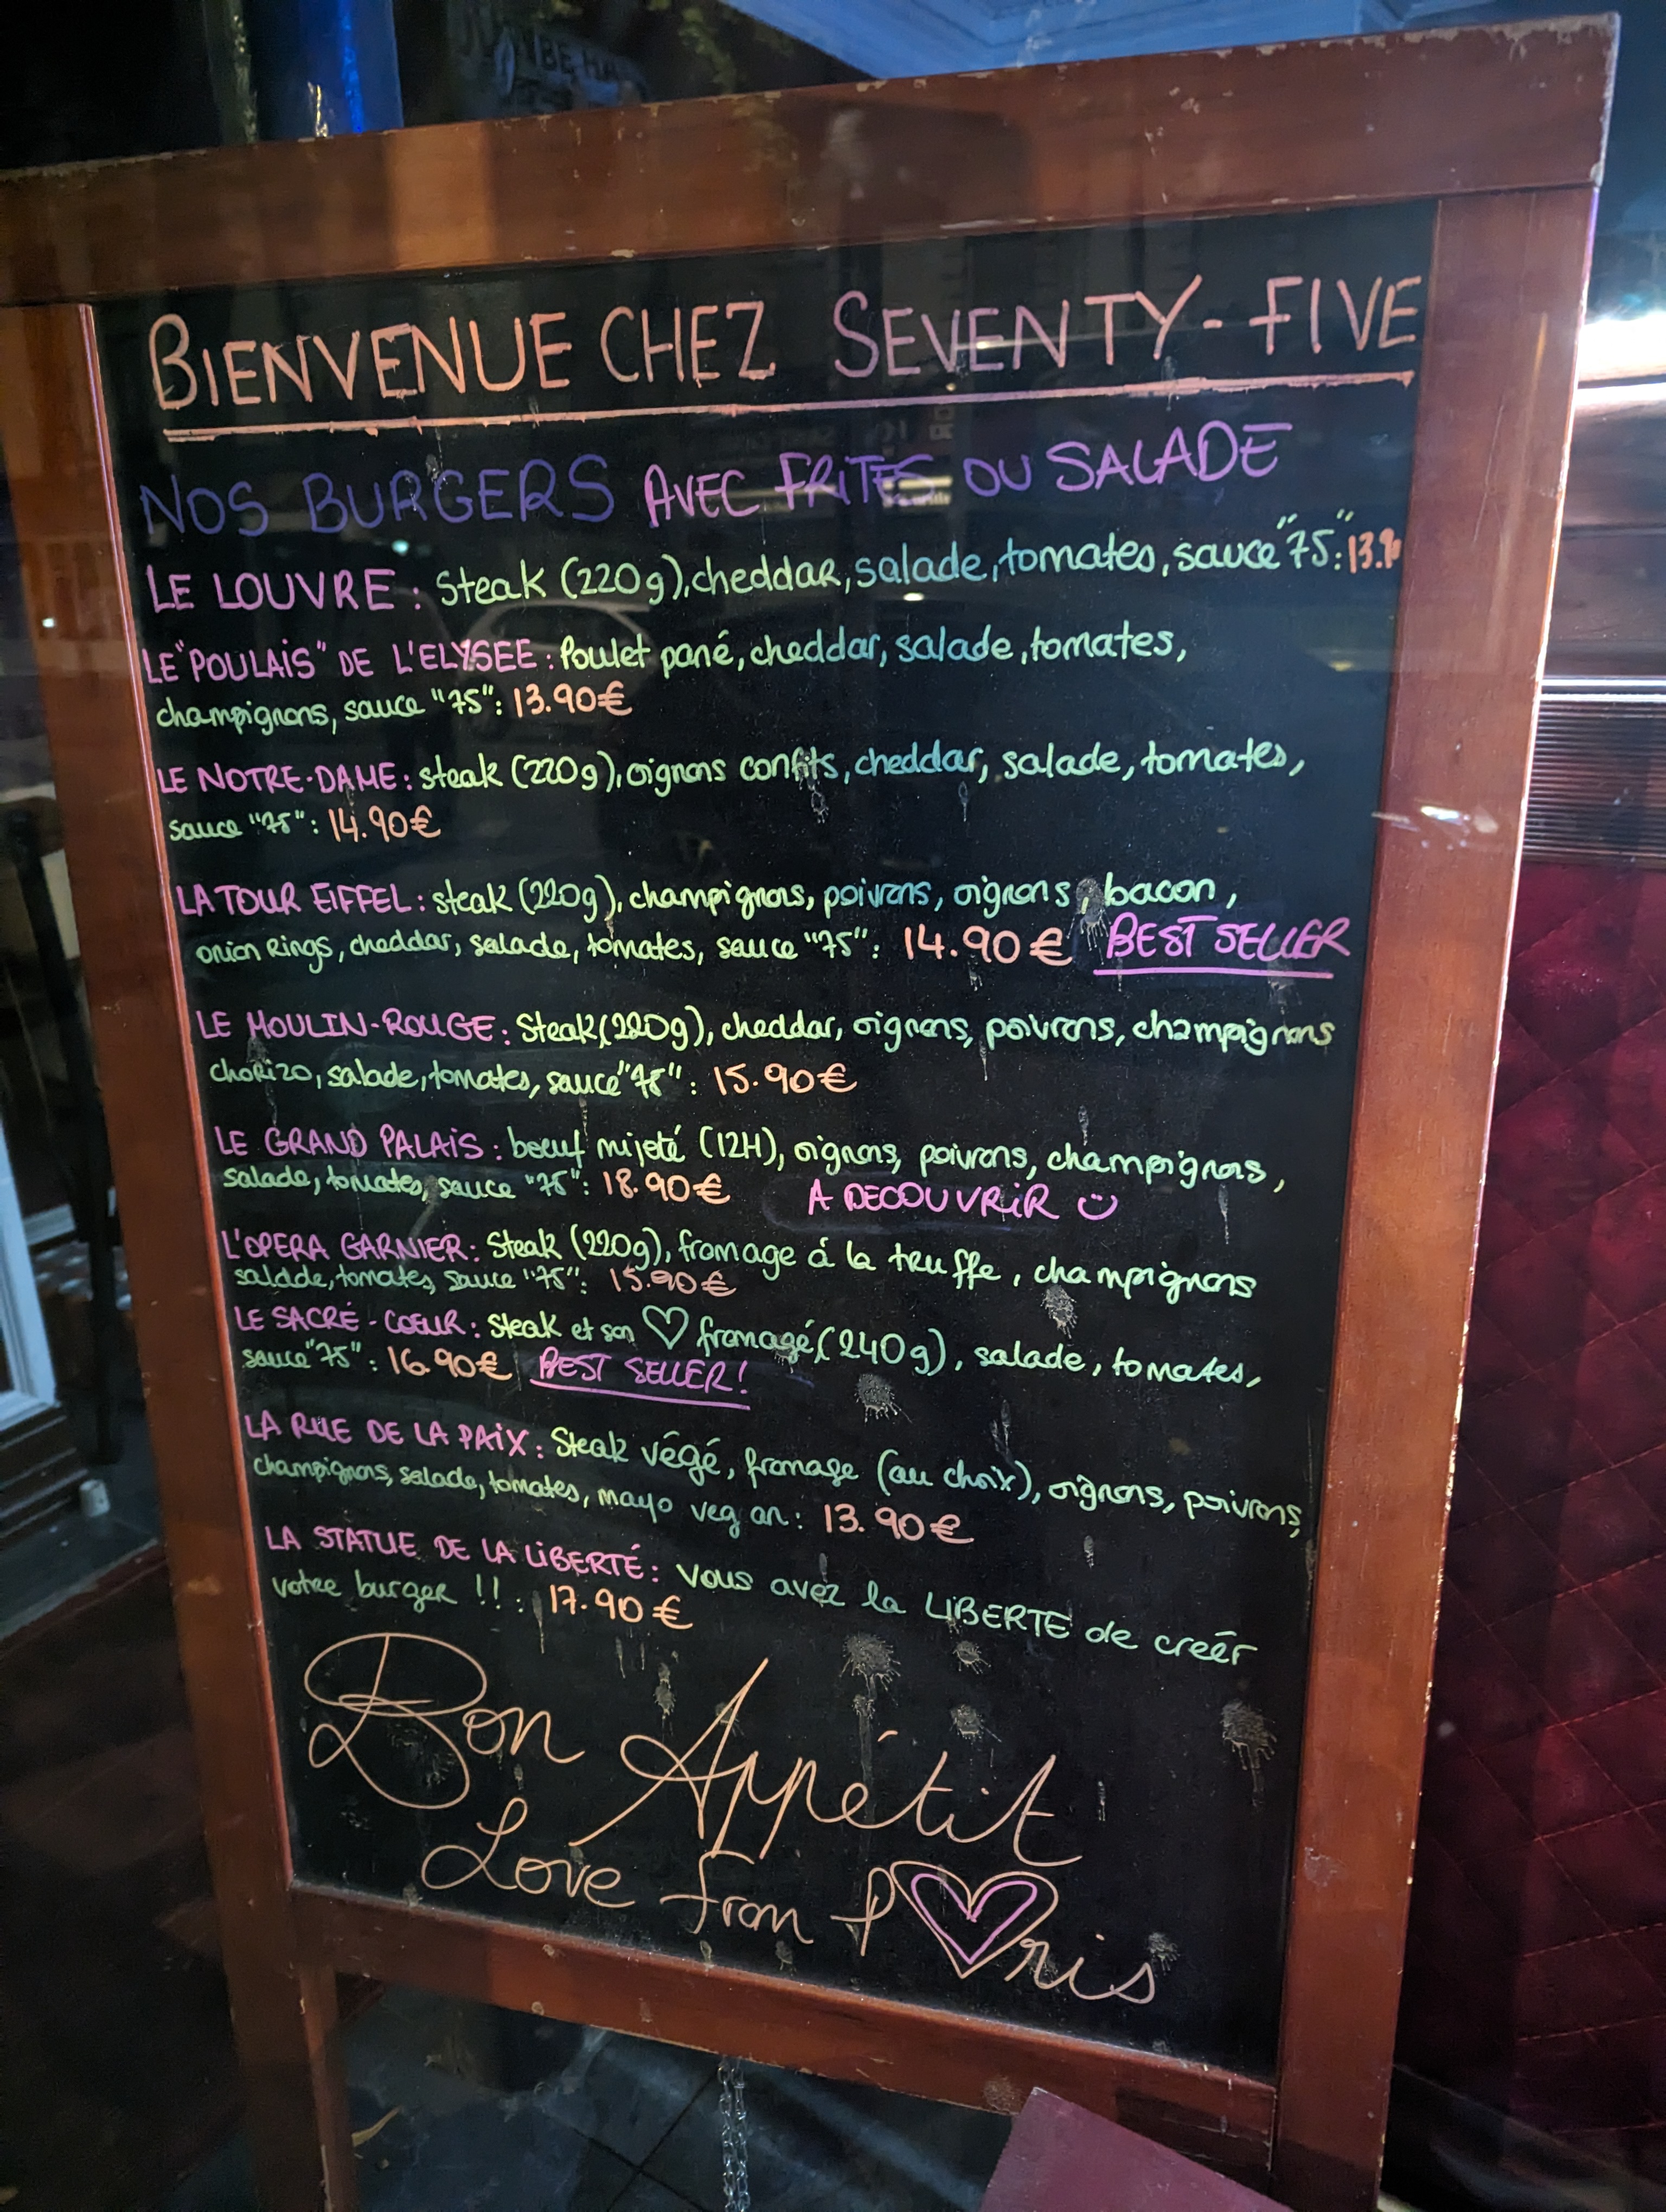 BIENVENUE CHEZ SEVENTY-FIVE
NOS BURGERS AVEC FRITES OU SALADE
LE LOUVRE : Steak (220g), cheddar, salade, tomates, sauce "75": 13.90
LE "POULAIS" DE L'ELYSEE : Poulet pané, cheddar, salade, tomates,
champignons, sauce "75": 13.90€
LE NOTRE-DAME : steak (220g), oignons confits, cheddar, salade, tomates,
sauce "75" : 14.90€
LA TOUR EIFFEL : steak (220g), champignons, poivrons, oignons, bacon,
onion Rings, cheddar, salade, tomates, sauce "75": 14.90€ BEST SELLER
LE MOULIN-ROUGE : Steak (220g), cheddar, oignons, poivrons, champignons
chorizo, salade, tomates, sauce "75" : 15.90€
LE GRAND PALAIS : boeuf mijeté (12H), oignons, poivrons, champignons,
salade, tomates, sauce "75": 18.90€ A DECOUVRIR
L'OPERA GARNIER : Steak (220g), fromage á la truffe, champignons
salade, tomates, sauce "75": 15.90€
LE SACRÉ-COEUR : Steak et son ♡ fromagé, (240g), salade, tomates,
sauce "75" : 16.90€ BEST SELLER!
LA RUE DE LA PAIX : Steak végé, fromage (au choix), oignons, poivrons,
champignons, salade, tomates, mayo vegan : 13.90€
LA STATUE DE LA LIBERTÉ : vous avez la LIBERTE de creér
votre burger !! : 17.90€
Bon Appétit
Love from P♡ris